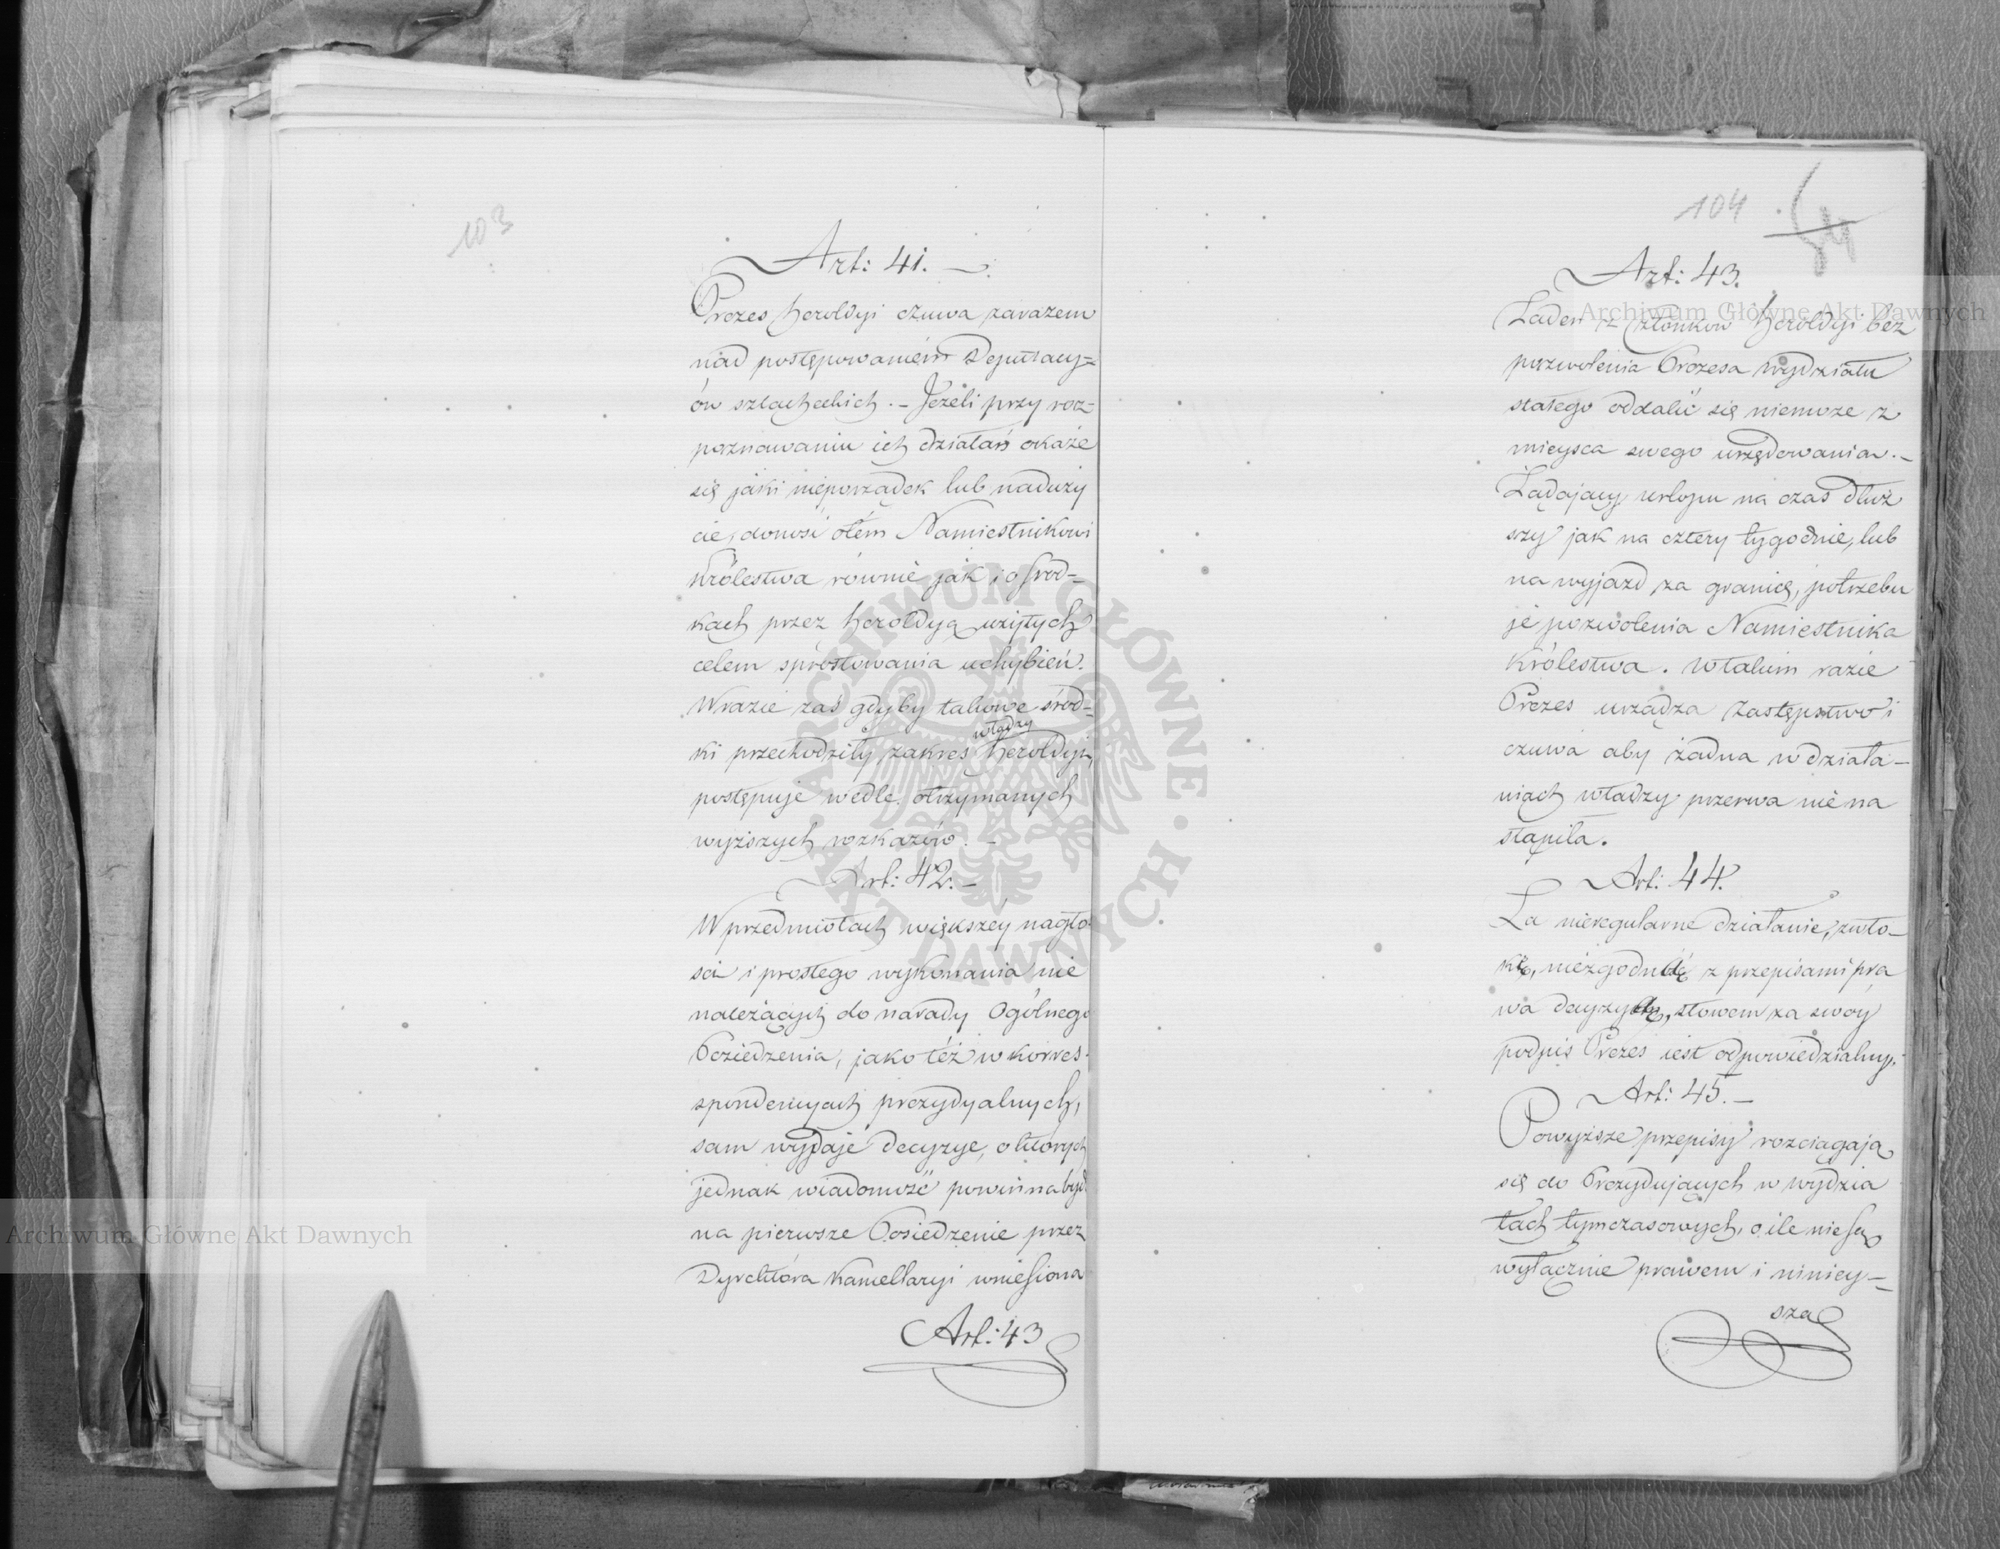 103
Art: 41. —
Prezes Heroldyi czuwa zarazem
nad postępowaniem Deputacy=
ów szlacheckich. — Jeżeli przy roz=
poznawaniu ich działań okaże
się jaki nieporządek lub naduży
cie, donosi otém Namiestnikowi
Królestwa równie jak i o środ=
kach przez Heroldyą użytych
celem sprostowania uchybień.
W razie zaś gdyby takowe środ=
władzy
ki przechodziły zakres Heroldyi,
postępuje wedle otrzymanych
wyższych rozkazów. —
Art: 42. —
W przedmiotach większéy nagło
ści i prostego wykonania nie
należących do narady Ogólnego
Posiedzenia, jako téż w korres=
pondencyach prezydyalnych,
sam wydaje decyzye, o których
jednak wiadomość powinna być
na pierwsze Posiedzenie przez
Dyrektora Kancellaryi wniesiona
Art: 43
104
54
Art: 43.
Żaden z członków Heroldyi bez
pozwolenia Prezesa Wydziału
stałego oddalić się niemoże z
mieysca swego urzędowania. —
Żądający urlopu na czas dłuż
szy jak na cztery tygodnie, lub
na wyjazd za granicę, potrzebu
je pozwolenia Namiestnika
Królestwa. W takim razie
Prezes urządza zastępstwo i
czuwa aby żadna w działa—
niach władzy przerwa nie na
stąpiła.
Art: 44.
Za nieregularne działanie, zwło—
kę, niezgodną z przepisami pra
wa decyzyę, słowem za swóy
podpis Prezes iest odpowiedzialny.
Art: 45. —
Powyższe przepisy rozciągają
się do Prezydujących w wydzia
łach tymczasowych, o ile nie są
wyłącznie prawem i niniey—
szą
Archiwum Główne Akt Dawnych
Archiwum Główne Akt Dawnych
ARCHIWUM GŁÓWNE • AKT DAWNYCH •